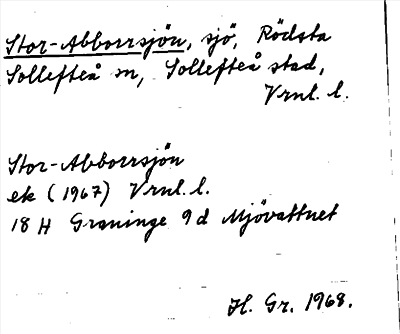 Stor-Abborrsjön, sjö, Rödsta
Sollefteå sn, Sollefteå stad,
Vrnl. l.
Stor-Abborrsjön
ek (1967) Vrnl. l.
18 H Graninge 9 d Mjövattnet
H. Gr. 1968.